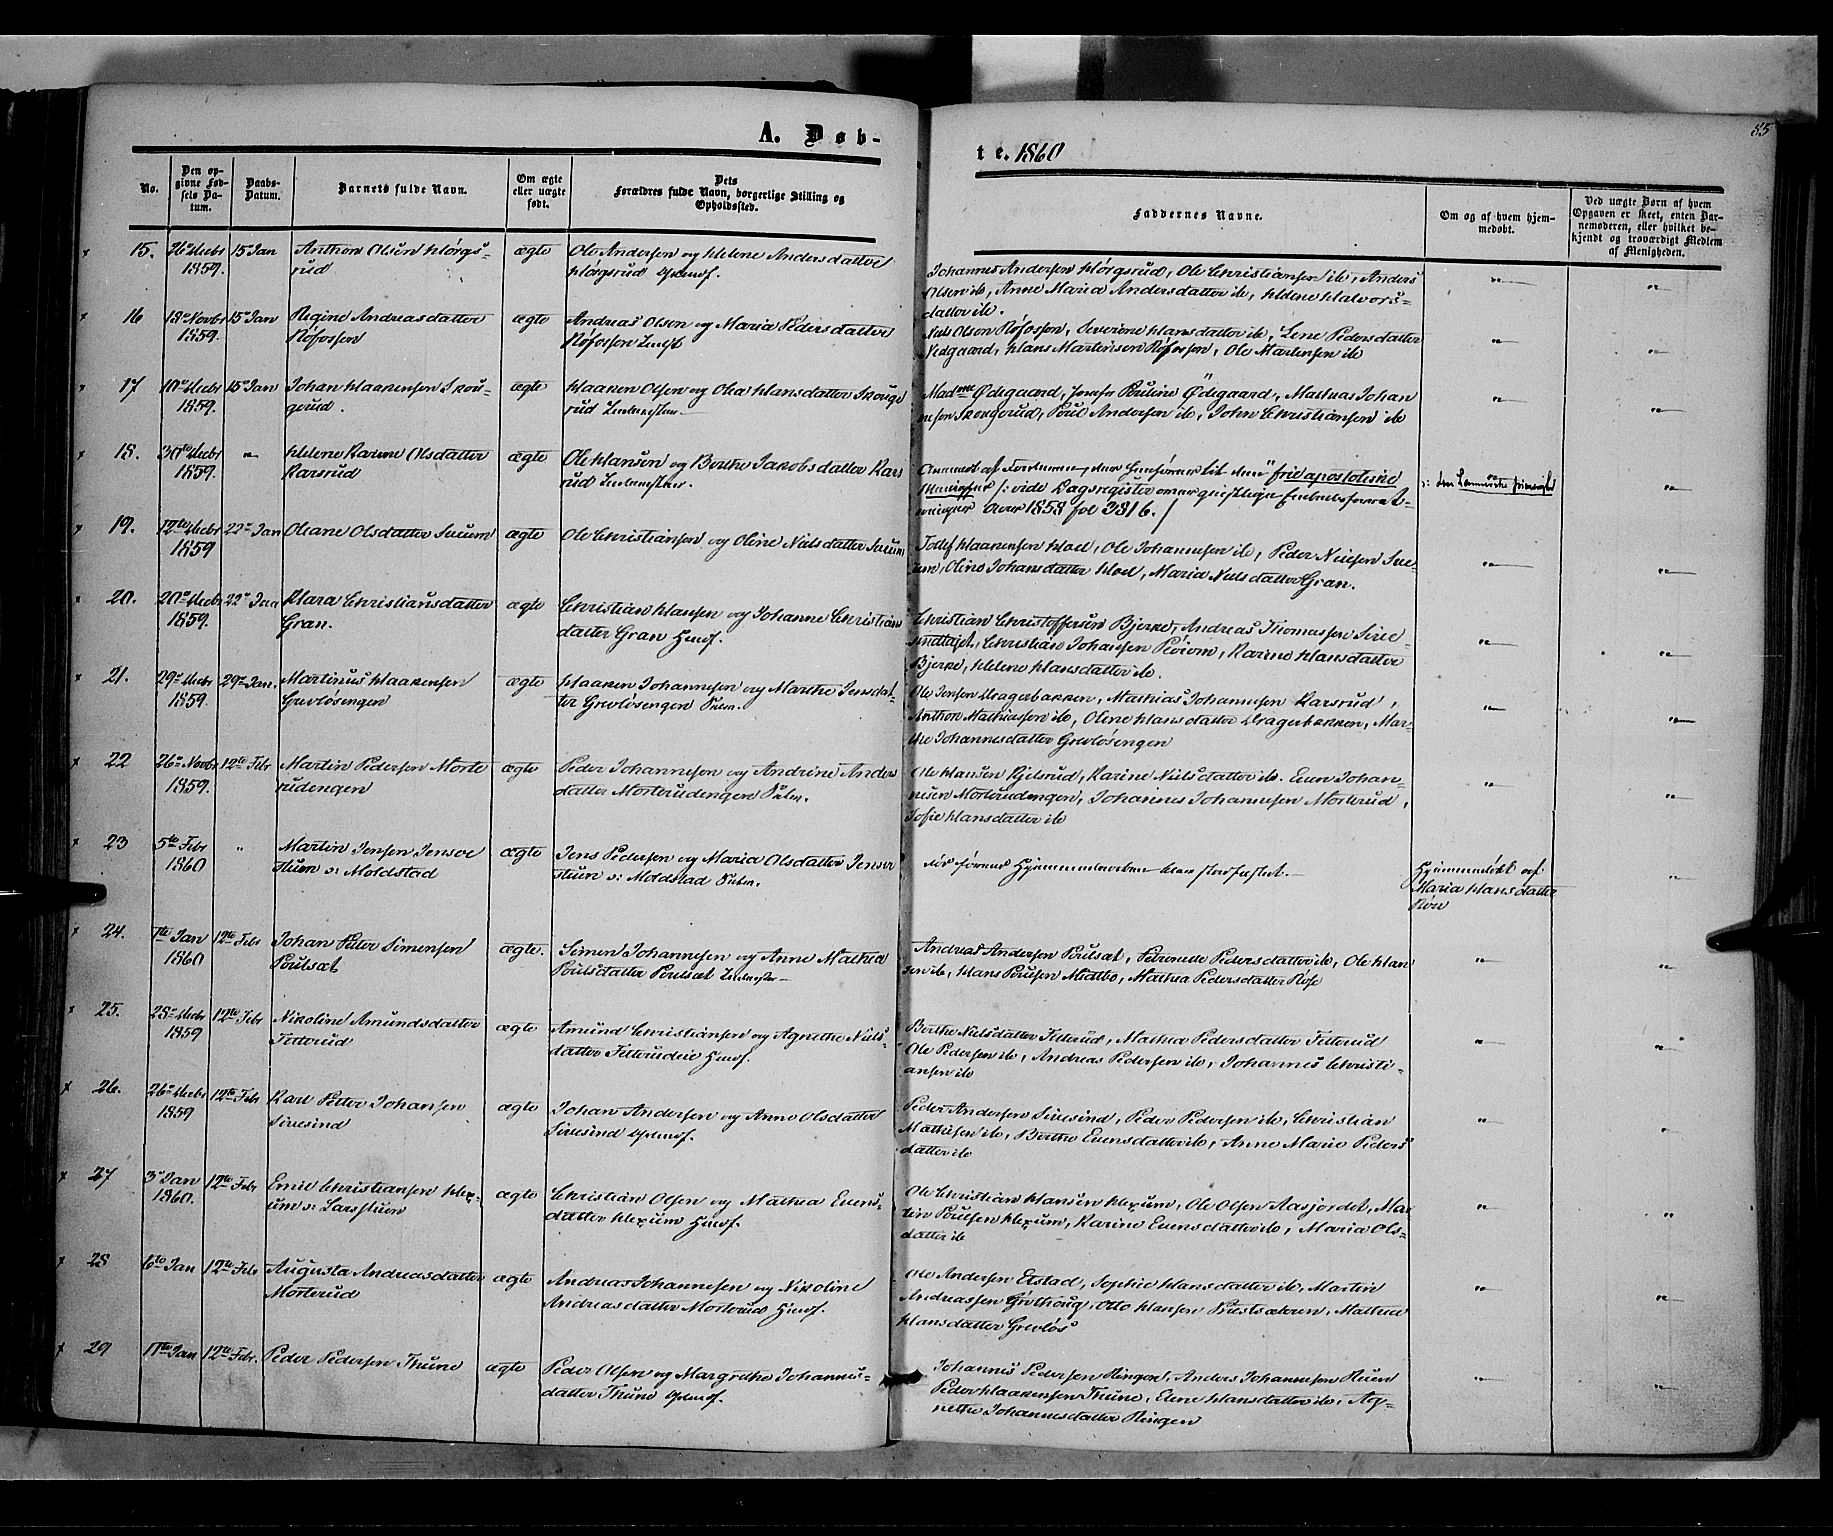 85
A. Døb-
te. 1860
No.
Den op-
givne Fød-
sels Da-
tum.
Daabs-
Datum.
Barnets fulde Navn.
Om ægte
eller uægte
født.
Dets
Forældres fulde Navn, borgerlige Stilling og
Opholdssted.
Faddernes Navne.
Om og af hvem hjem-
medøbt.
Ved uægte Børn af hvem
Opgaven er skeet, enten Bar-
nemoderen, eller hvilket be-
kjendt og troværdigt Medlem
af Menigheden.
15. 26 Decbr 15 Jan Anthon Olsen Hørgs- ægte Ole Andersen og Helene Andersdatter
1859. rud Hørgsrud
Johannes Andersen Hørgsrud, Ole Christiansen ib, Anders
Olsen ib, Anne Maria Andersdatter ib, Helene Halvors-
datter ib.
16 18 Novbr 15 Jan Regine Andreasdatter ægte Andreas Olsen og Maria Pedersdatter
1859. Røfossen Røfossen
Niels Olsen Røfossen, Severine Hansdatter ib, Lene Pedersdatter
Nedgaard, Hans Martinsen Røfossen, Ole Martinsen ib
17 10 Decbr 15 Jan Johan Haakensen Skou- ægte Haaken Olsen og Olea Hansdatter Skouge
1859. gerud. rud
Madme Ødegaard, Josefa Pauline Ødegaard, Mathias Johan
nesen Skougerud, Poul Andersen ib, John Christiansen ib
18. 30te Decbr Helene Karine Olsdatter ægte Ole Hansen og Berthe Jakobsdatter Kars
1859. Karsrud rud
Anmeldt af Forældrene, der henhører til den frie apostoliske
Menighed /: vide Dagsregister over geistlige Embedsforret-
ninger Aar 1858 fol 381 6./
19. 12te Decbr 22 Jan Oleane Olsdatter Sueum ægte Ole Christiansen og Oline Nielsdatter Sueum
1859
Tollef Haakensen Hoel, Ole Johannesen ib, Peder Nielsen Sue-
um, Oline Johansdatter Hoel, Maria Nielsdatter Gran.
20. 20 Decbr 22 Jan Klara Christiansdatter ægte Christian Hansen og Johanne Christians
1859. Gran. datter Gran Huusf.
Christian Christoffersen Bjerke, Andreas Thomassen Sire
sindhaget, Christian Johansen, Karine Hansdatter
Bjerke, Helene Hansdatter ib.
21. 29 Decbr 29 Jan. Martinus Haakensen ægte Haaken Johannesen og Marthe Jensdat-
1859. Grevløsengen ter Grevløsengen Inds.
Ole Jensen Dragerbakken, Mathias Johannesen Karsrud,
Anthon Mathiassen ib, Olene Hansdatter Dragerbakken, Mar-
the Johannesdatter Grevløsengen
22 26 Novbr 12te Febr Martin Pedersen Morte ægte Peder Johannesen og Andrine Anders
1859. rudengen datter Morterudengen Inds.
Ole Hansen Kjelsrud, Karine Nielsdatter ib. Even Johan-
nesen Morterudengen, Johannes Johannesen Morterud,
Sofie Hansdatter ib
23 5te Febr Martin Jensen Jensve ægte Jens Pedersen og Maria Olsdatter Jensve
1860 stuen v: Moldstad stuen v: Moldstad Inds.
Hjemmedøbt af
Maria Hansdatter
24. 7te Jan 12te Febr Johan Petter Simensen ægte. Simen Johannesen og Anne Mathea
1860 Poulsæt Poulsdatter Poulsæt
Andreas Andersen Poulsæt, Petronelle Pedersdatter ib, Ole Han
sen ib, Hans Poulsen Mælbo, Mathea Pedersdatter Røse
25. 28 Decbr 12te Febr Nikoline Amundsdatter ægte Amund Christiansen og Agnethe Niels-
1859 Fetterud datter Fetterudeie Huusf.
Berthe Nielsdatter Fetterud, Mathea Pedersdatter Fetterud
Ole Pedersen ib, Andreas Pedersen ib, Johannes Christi-
ansen ib
26. 26 Decbr 12te Febr Karl Petter Johansen ægte Johan Andersen og Anne Olsdatter
1859 Siresind Siresind
Peder Andersen Siresind, Peder Pedersen ib, Christian
Mathisen ib, Berthe Evensdatter ib, Anne Marie Peders
datter ib
27 3 Jan 12te Febr Emil Christiansen Hex- ægte Christian Olsen og Mathea Evens-
1860. um v: Larsstuen datter Hexum Huusf.
Ole Christian Hansen Hexum, Ole Olsen Aasjordet, Mar
tin Poulsen Hexum, Karine Evensdatter ib, Maria Ols-
datter ib
28 6te Jan 12te Febr Augusta Andreasdatter ægte Andreas Johannesen og Nikoline
Morterud Andreasdatter Morterud Huusf.
Ole Andersen Elstad, Sophie Hansdatter ib, Martin
Andreassen Grøthoug, Otto Hansen Præstsæteren, Mathea
Hansdatter Grevløs
29 11te Jan 12te Febr. Peder Pedersen Thune ægte Peder Olsen og Margrethe Johannes-
datter Thune
Johannes Pedersen Ringen, Anders Johannesen Huen
Peder Haakensen Thune, Elene Hansdatter ib, Ag-
nethe Johannesdatter Ringen